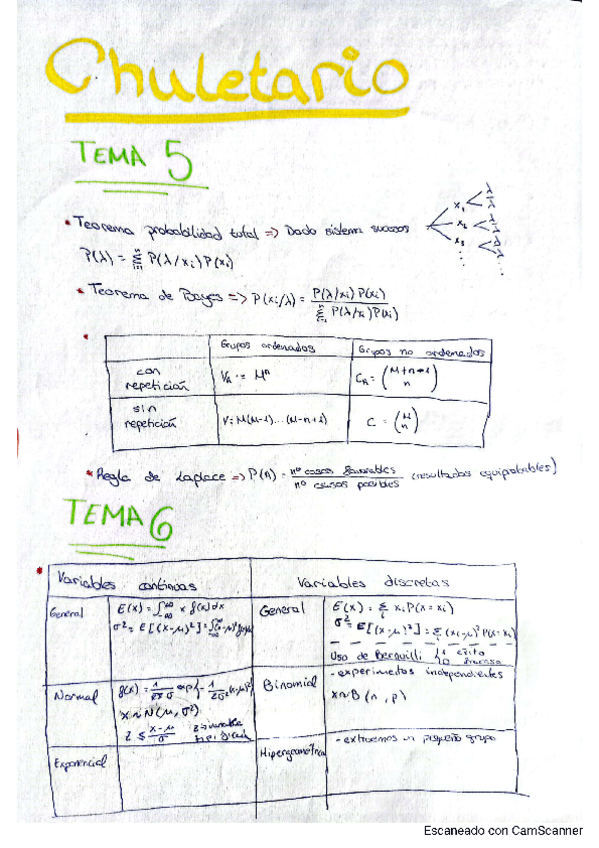 Chuletario
TEMA 5
• Teorema probabilidad total => Dado sistema sucesos
x₁ λ λ̄
x₂ λ λ̄
x₃ λ λ̄
P(λ) = Σ P(λ/xᵢ) P(xᵢ)
• Teorema de Bayes => P(xᵢ/λ) = P(λ/xᵢ) P(xᵢ) / Σ P(λ/xᵢ) P(xᵢ)
Grupos ordenados Grupos no ordenados
con repetición V_R = Mⁿ C_R = (M+n-1 n)
sin repetición V = M(M-1)...(M-n+1) C = (M n)
• Regla de Laplace => P(n) = nº casos favorables / nº casos posibles (resultados equiprobables)
TEMA 6
Variables continuas Variables discretas
General E(x) = ∫ x f(x) dx General E(x) = Σ xᵢ P(x=xᵢ)
σ² = E[(x-μ)²] = σ² = E[(x-μ)²] = Σ (xᵢ-μ)² P(x=xᵢ)
Uso de 1 éxito 0 fracaso
Normal f(x) = Binomial - experimentos independientes
x~N(μ, σ²) x~B(n, p)
x-μ / σ
Exponencial Hipergeométrica - extraemos un pequeño grupo
Escaneado con CamScanner